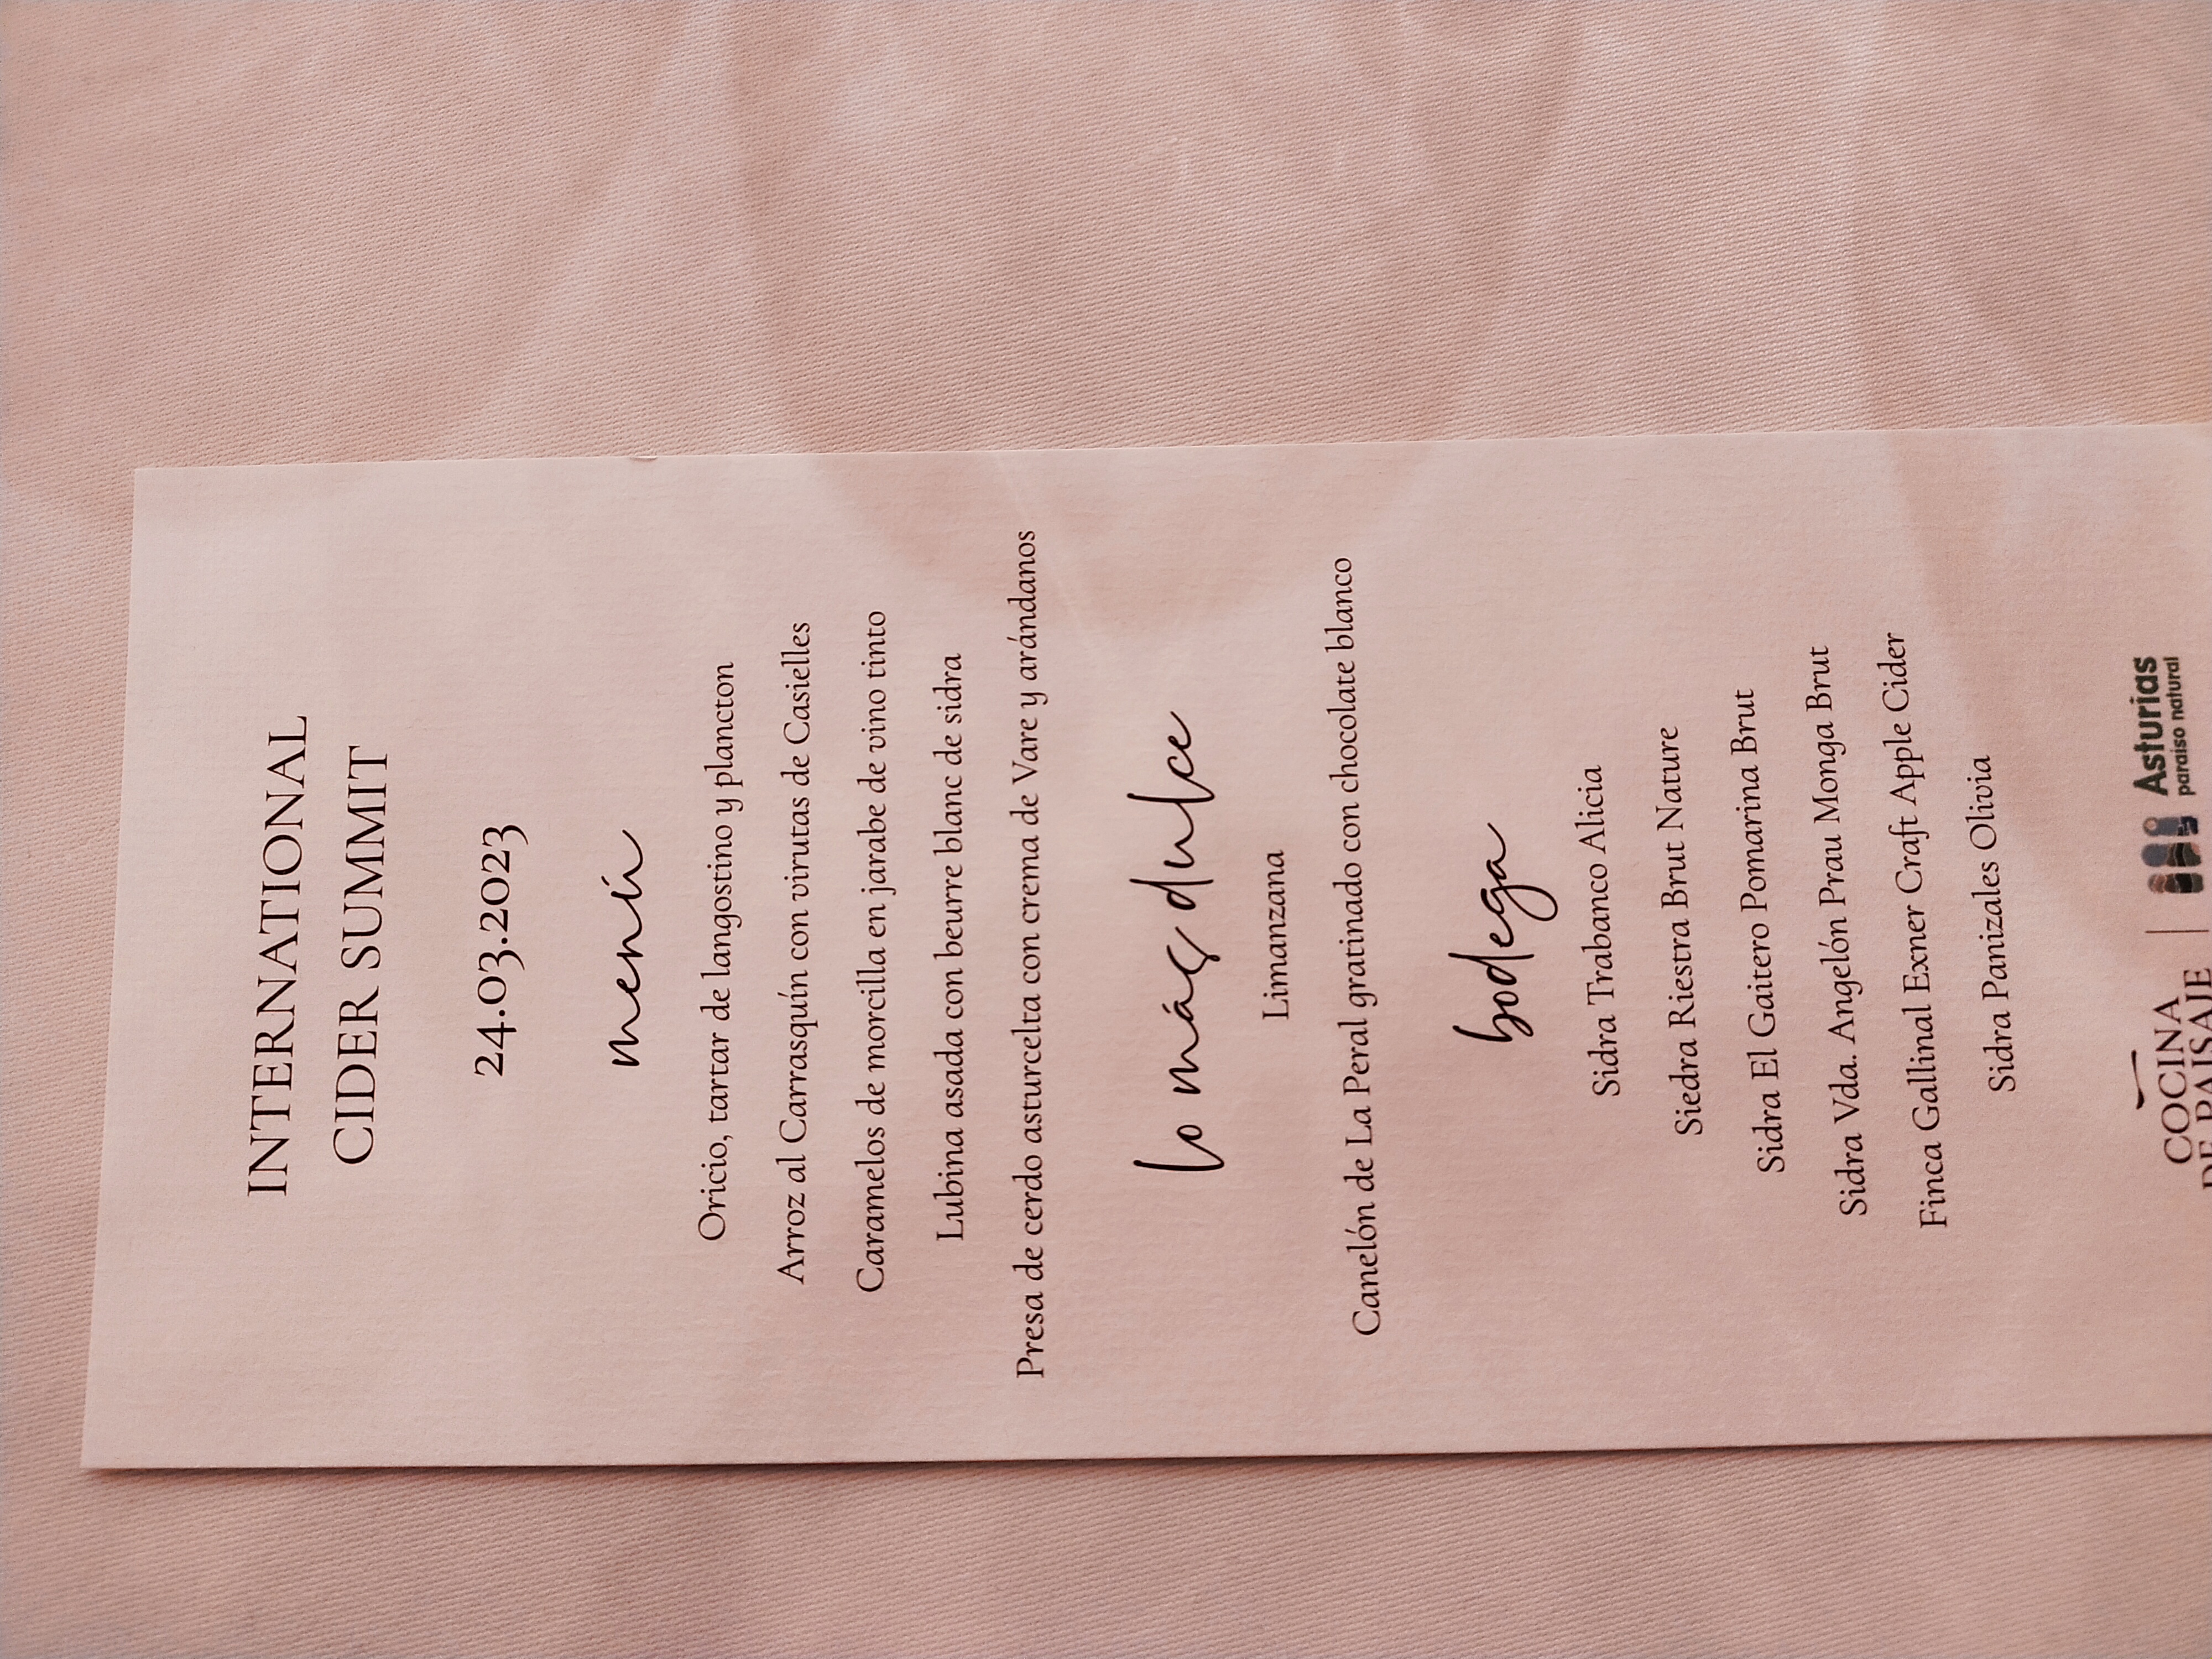 INTERNATIONAL
CIDER SUMMIT
24.03.2023
menú
Oricio, tartar de langostino y plancton
Arroz al Carrasquín con virutas de Casielles
Caramelos de morcilla en jarabe de vino tinto
Lubina asada con beurre blanc de sidra
Presa de cerdo asturcelta con crema de Vare y arándanos
lo más dulce
Limanzana
Canelón de La Peral gratinado con chocolate blanco
bodega
Sidra Trabanco Alicia
Siedra Riestra Brut Nature
Sidra El Gaitero Pomarina Brut
Sidra Vda. Angelón Prau Monga Brut
Finca Gallinal Exner Craft Apple Cider
Sidra Panizales Olivia
COCINA
DE PAISAJE
Asturias
paraíso natural